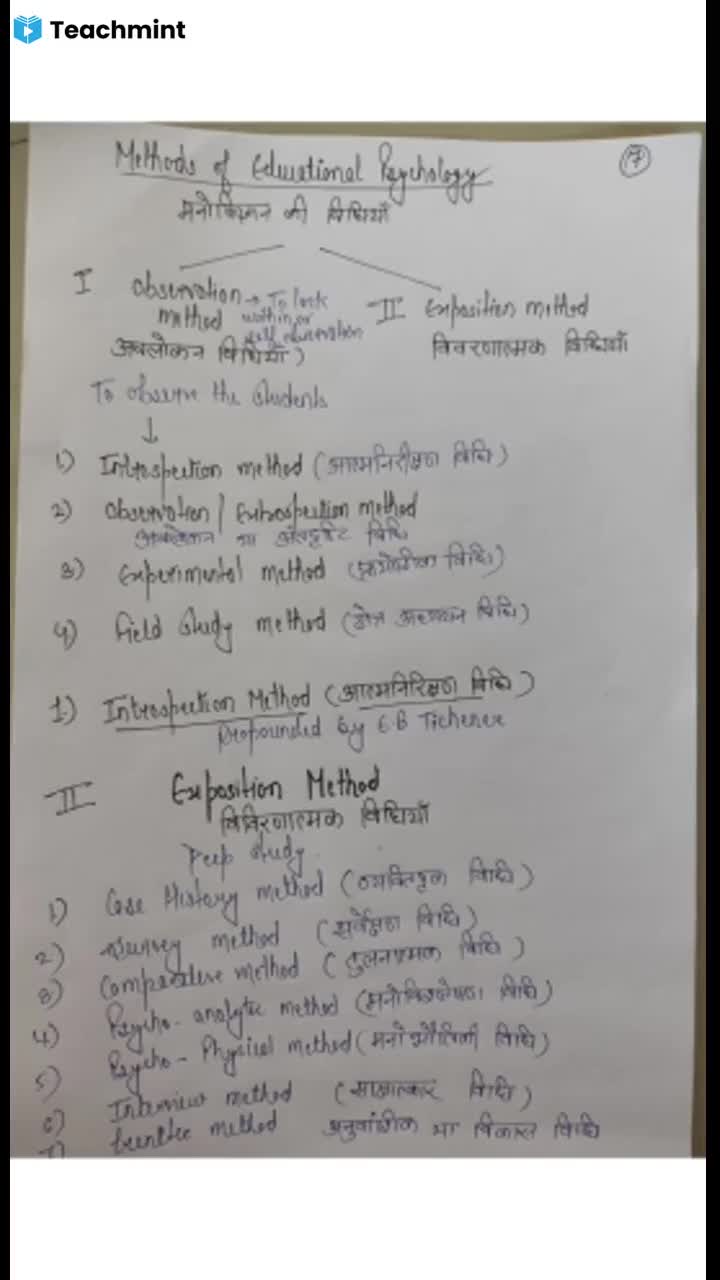 Teachmint
Methods of Educational Psychology
7
मनोविज्ञान की विधियाँ
I Observation → To look
method within or
self observation
अवलोकन विधियाँ)
II Exposition method
विवरणात्मक विधियाँ
To observe the Students
↓
1) Introspection method (आत्मनिरीक्षण विधि)
2) Observation / Extrospection method
अवलोकन या विधि
3) Experimental method (प्रायोगिक विधि)
4) Field Study method (क्षेत्र अध्ययन विधि)
1.) Introspection Method (आत्मनिरिक्षण विधि)
Propounded by E.B Tichener
II Exposition Method
विविरणात्मक विधियाँ
Deep study
1) Case History method (विधि)
2) Survey method (सर्वेक्षण विधि)
3) Comparative method (तुलनात्मक विधि)
4) Psycho-analytic method (मनोविश्लेषण विधि)
5) Psycho-Physical method (मनोभौतिकी विधि)
6) Interview method (साक्षात्कार विधि)
7) method अनुवांशिक या विकास विधि